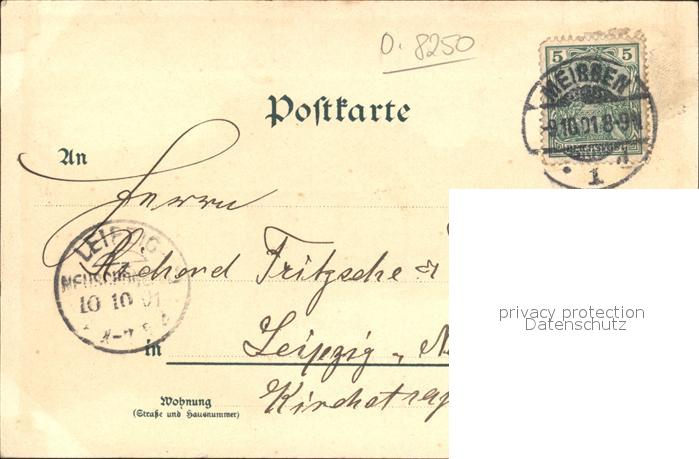 O. 8250
5 5
MEISSEN
-9.10.01.8-9N
1
Postkarte
An
Herrn
LEIPZIG
10 10 01
Richard Fritzsche &
in Leipzig
Kirchstra
Wohnung
(Straße und Hausnummer)
privacy protection
Datenschutz